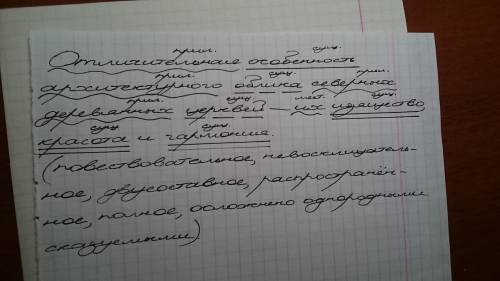 прил. сущ.
Отличительная особенность
прил. сущ. прил.
архитектурного облика северных
прил. сущ. мест. сущ.
деревянных церквей — их изящество,
сущ. сущ.
красота и гармония.
(повествовательное, невосклицатель-
ное, двусоставное, распространён-
ное, полное, осложнено однородными
сказуемыми)